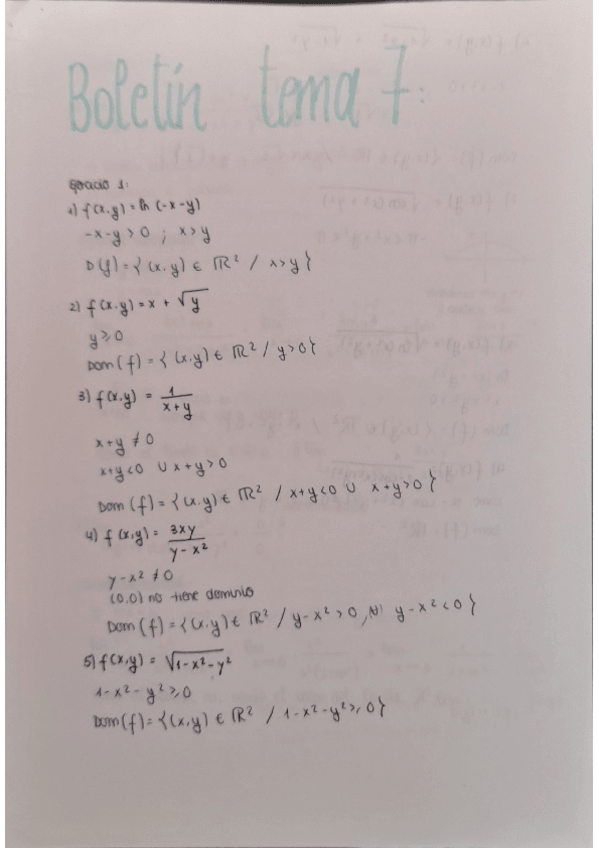 Boletín tema 7:
Ejercicio 1:
1) f(x,y) = ln (-x-y)
-x-y > 0 ; x > y
D(f) = { (x,y) ∈ ℝ² / x>y }
2) f(x,y) = x + √y
y ≥ 0
Dom(f) = { (x,y) ∈ ℝ² / y>0 }
3) f(x,y) = 1/(x+y)
x+y ≠ 0
x+y<0 ∪ x+y>0
Dom (f) = { (x,y) ∈ ℝ² / x+y<0 ∪ x+y>0 }
4) f(x,y) = 3xy/(y-x²)
y-x² ≠ 0
(0,0) no tiene dominio
Dom(f) = { (x,y) ∈ ℝ² / y-x²>0, y-x²<0 }
5) f(x,y) = √(1-x²-y²)
1-x²-y² ≥ 0
Dom(f) = { (x,y) ∈ ℝ² / 1-x²-y² ≥ 0 }